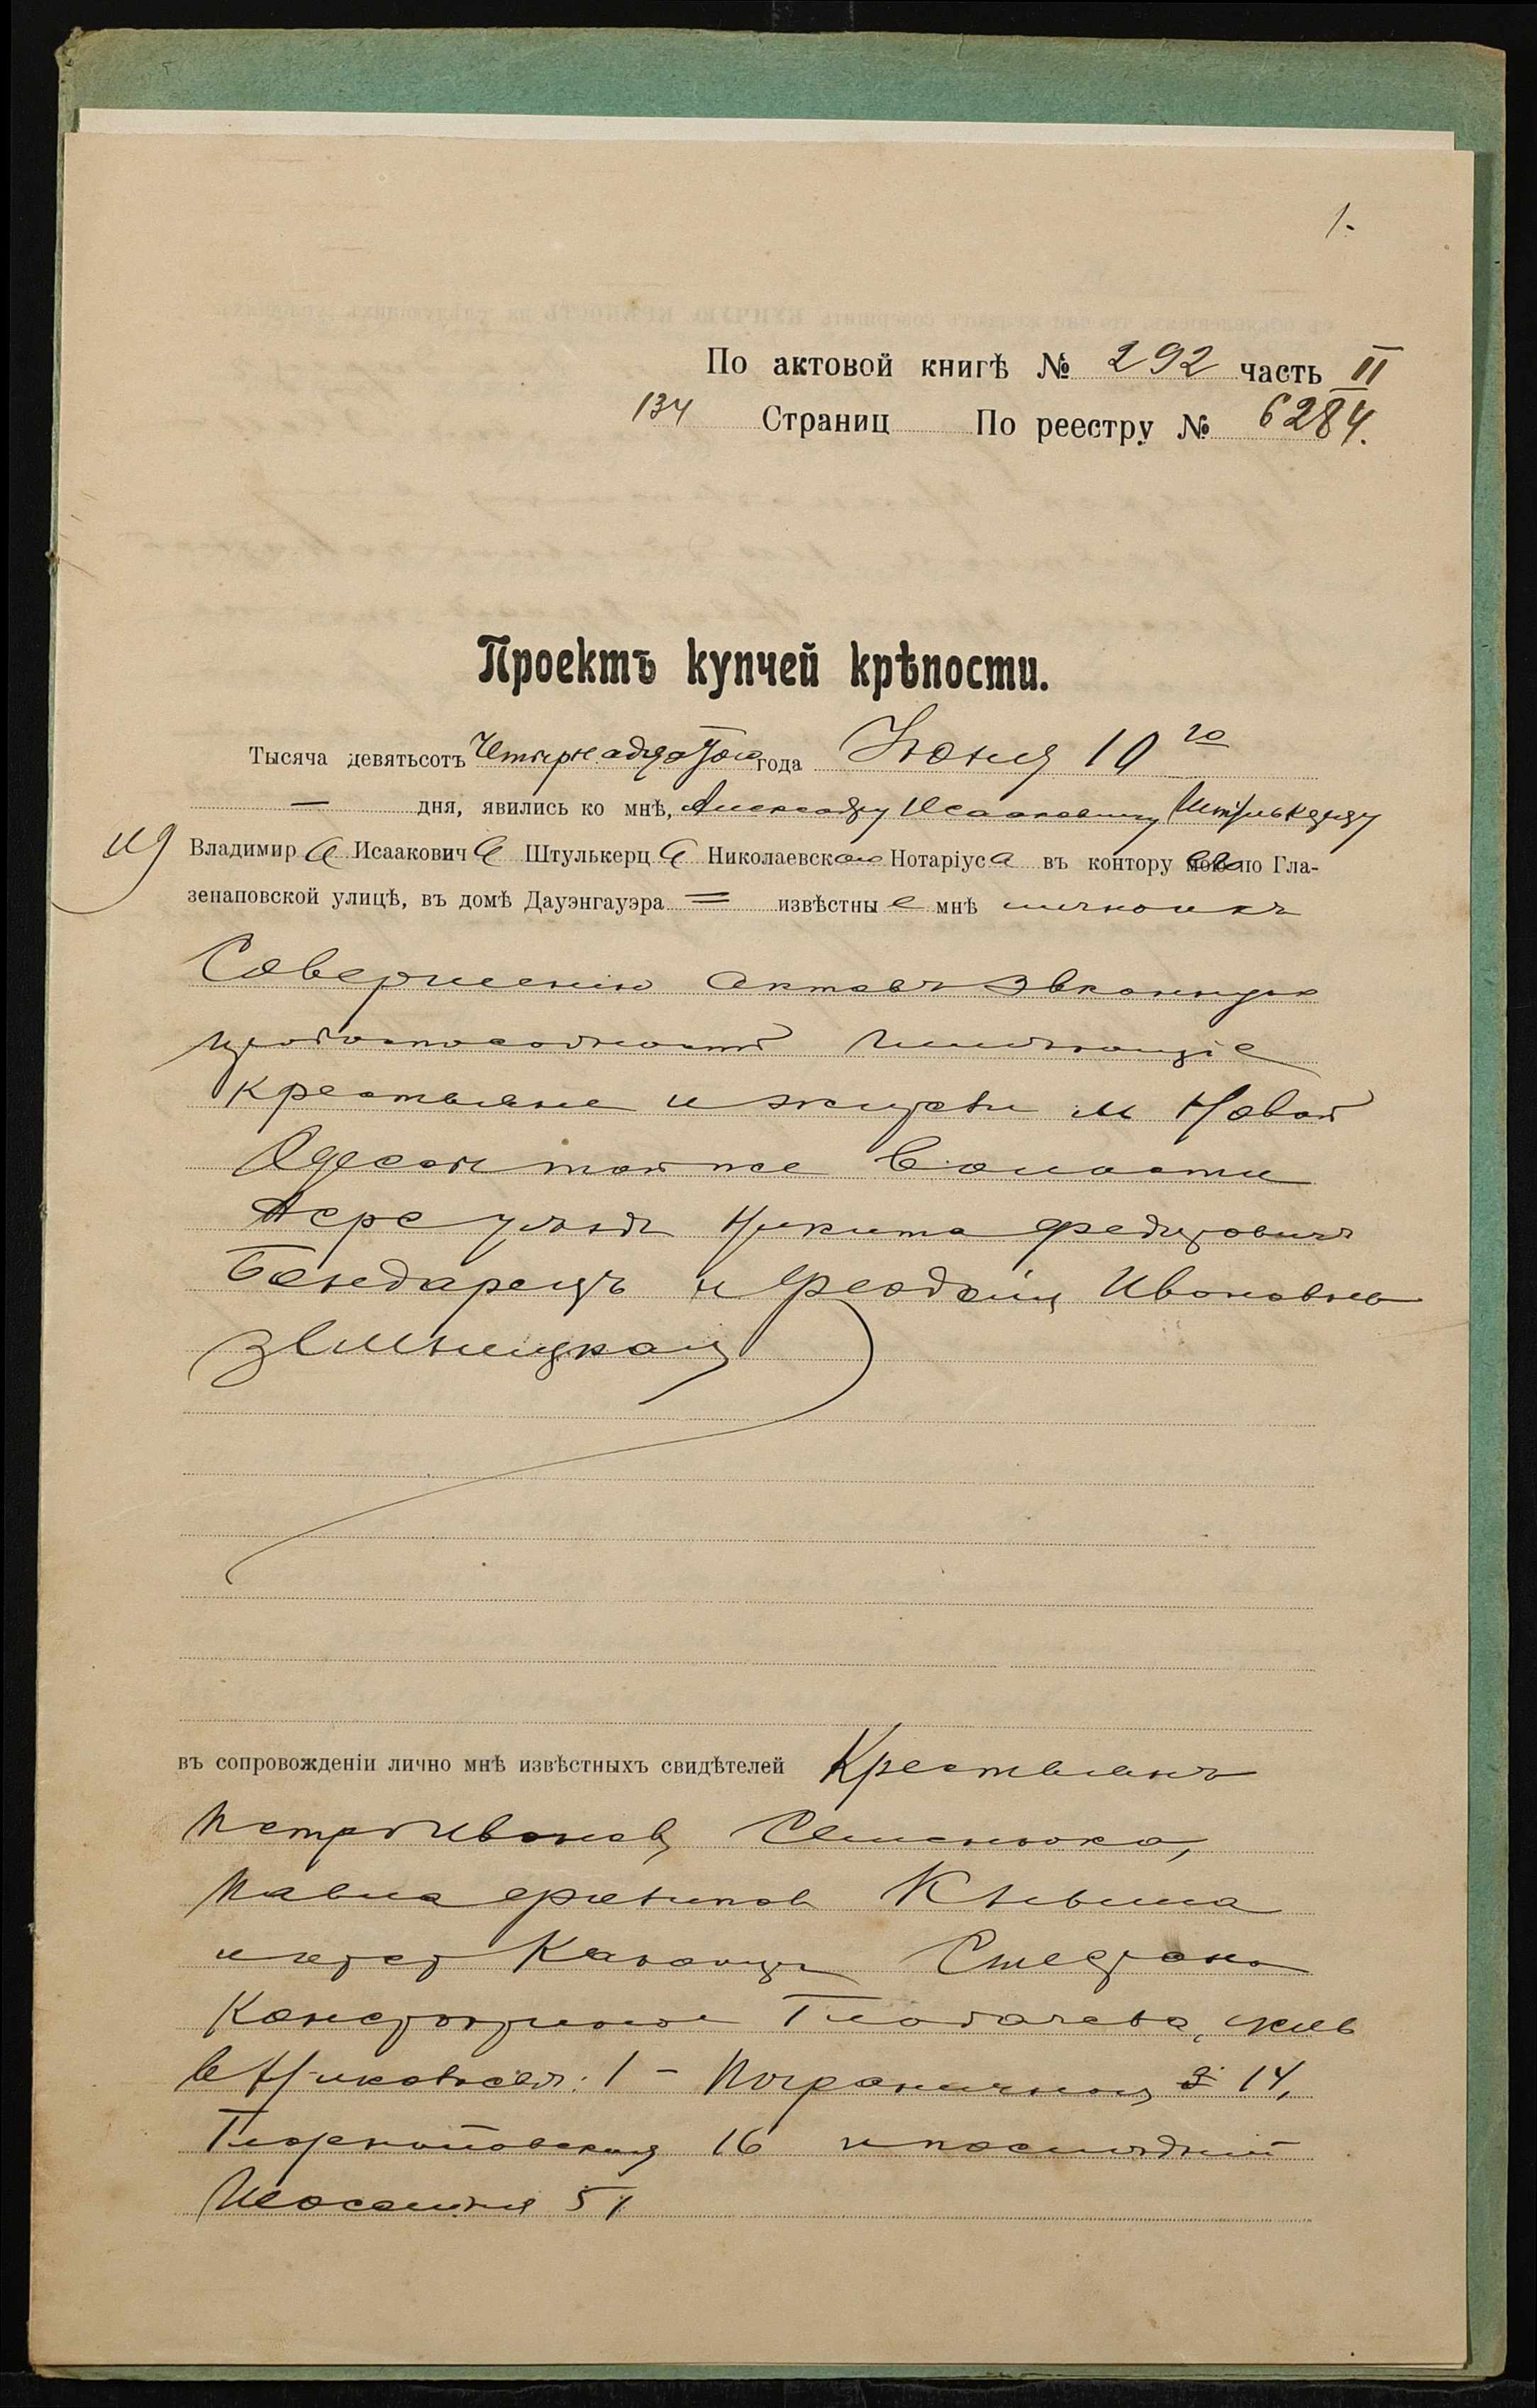 1.
По актовой книгѣ № 292 часть II
134 Страниц По реестру № 6284.
Проектъ купчей крѣпости.
Тысяча девятьсотъ четырнадцатого года Іюня 10 го
— дня, явились ко мнѣ, Александру Исааковичу Штулькерцу
Владимира Исааковича Штулькерца Николаевскаго Нотаріуса въ контору его по Гла-
зенаповской улицѣ, въ домѣ Дауэнгауэра = извѣстные мнѣ лично и къ
Совершенію актовъ законную
правоспособность имѣющіе
крестьяне и жители м Новой
Одессы той же волости
Херс уѣзда Никита Федоровичъ
Бондарецъ и Феодосія Ивановна
въ сопровожденіи лично мнѣ извѣстныхъ свидѣтелей Крестьянъ
Петра Иванов Семенюка,
Павла
и Стефана
живъ
въ Николаевѣ: 1 – Пограничная 14,
16 и послѣдній
51